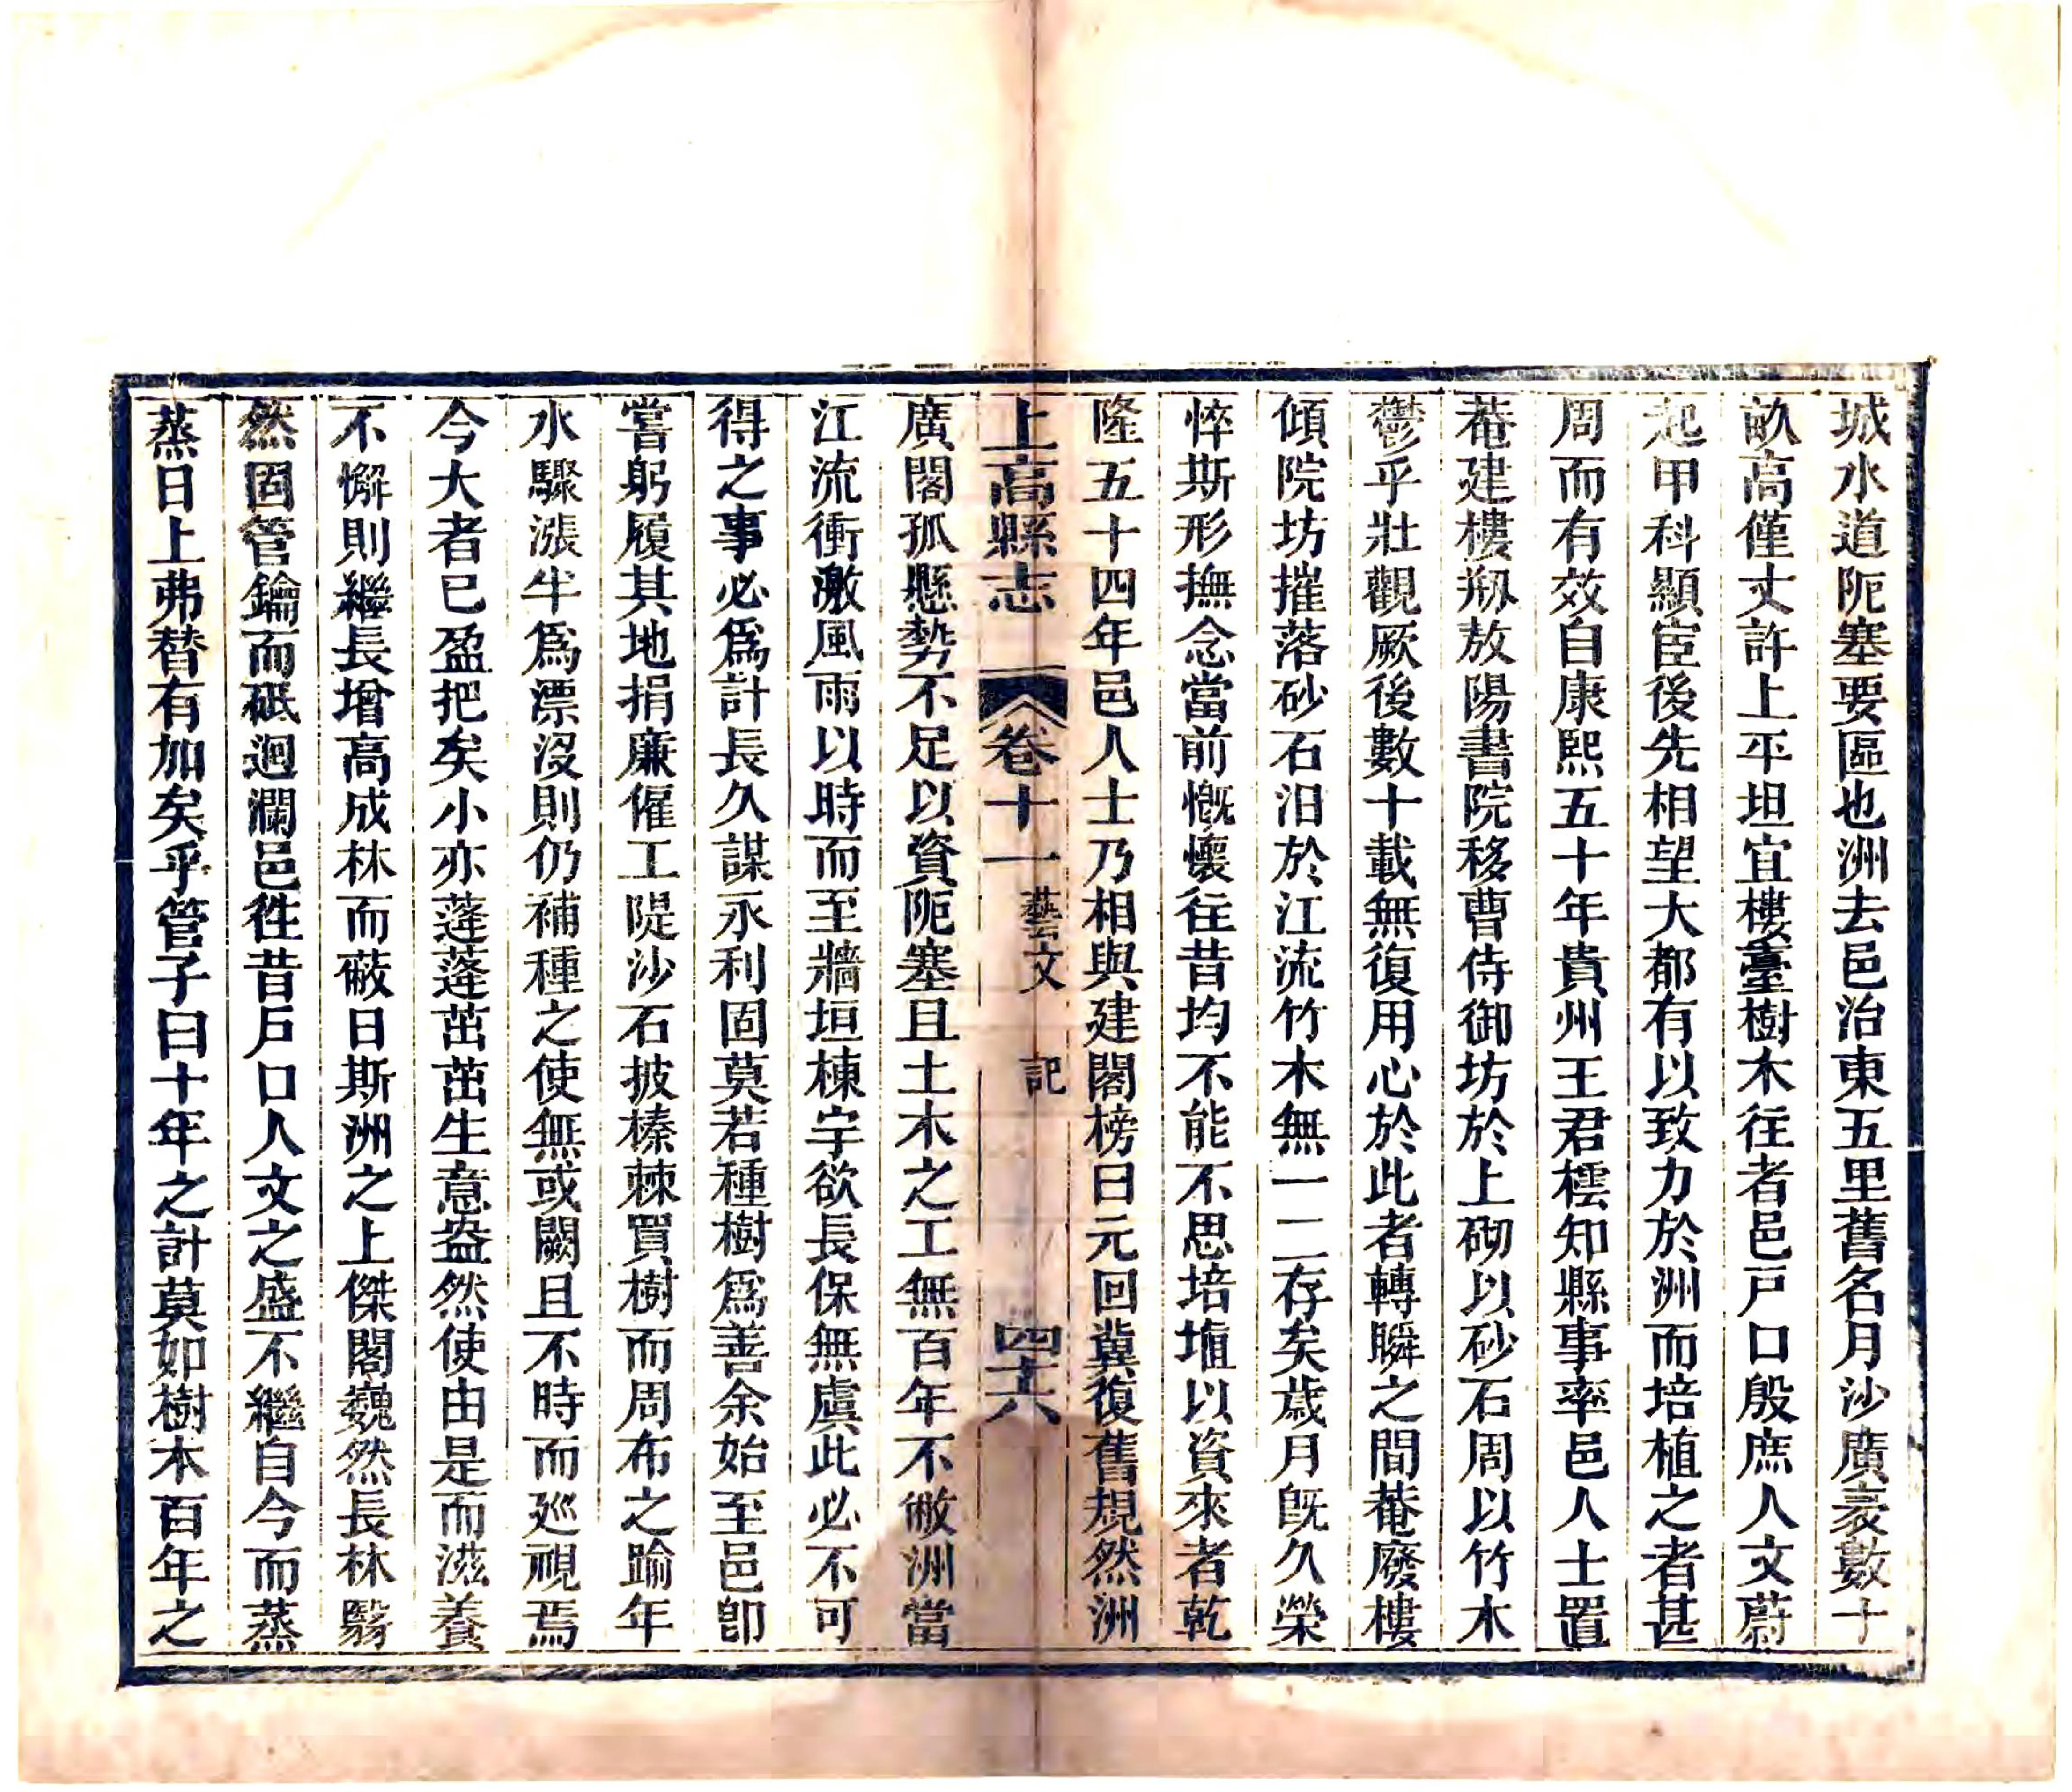 城水道阨塞要區也洲去邑治東五里舊名月沙廣袤數十
畝高僅丈許上平坦宜樓臺樹木往者邑戸口殷庶人文蔚
起甲科顯宦後先相望大都有以致力於洲而培植之者甚
周而有效自康熙五十年貴州王君橒知縣事率邑人士置
菴建樓剏敖陽書院移曹侍御坊於上砌以砂石周以竹木
鬱乎壯觀厥後數十載無復用心於此者轉瞬之間菴廢樓
傾院坊摧落砂石汨於江流竹木無一二存矣歲月旣久榮
悴斯形撫念當前慨懷往昔均不能不思培埴以資來者乾
隆五十四年邑人士乃相與建閣榜曰元回冀復舊規然洲
上高縣志 卷十一 藝文 記 四十六
廣閣孤懸勢不足以資阨塞且土木之工無百年不敝洲當
江流衝激風雨以時而至牆垣棟宇欲長保無虞此必不可
得之事必爲計長久謀永利固莫若種樹爲善余始至邑卽
嘗躬履其地捐廉僱工隄沙石披榛棘買樹而周布之踰年
水驟漲半爲漂沒則仍補種之使無或闕且不時而廵視焉
今大者已盈把矣小亦蓬蓬茁茁生意盎然使由是而滋養
不懈則繼長增高成林而蔽日斯洲之上傑閣巍然長林翳
然固管鑰而砥迴瀾邑徃昔戸口人文之盛不繼自今而蒸
蒸日上弗替有加矣乎管子曰十年之計莫如樹木百年之